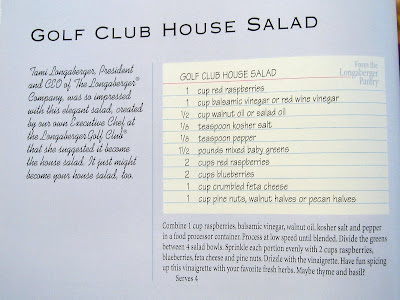 GOLF CLUB HOUSE SALAD
Tami Longaberger, President
and CEO of The Longaberger®
Company, was so impressed
with this elegant salad, created
by our own Executive Chef at
the Longaberger Golf Club®
that she suggested it become
the house salad. It just might
become your house salad, too.
From the
Longaberger
Pantry
GOLF CLUB HOUSE SALAD
1 cup red raspberries
1 cup balsamic vinegar or red wine vinegar
1/2 cup walnut oil or salad oil
1/8 teaspoon kosher salt
1/8 teaspoon pepper
1 1/2 pounds mixed baby greens
2 cups red raspberries
2 cups blueberries
1 cup crumbled feta cheese
1 cup pine nuts, walnut halves or pecan halves
Combine 1 cup raspberries, balsamic vinegar, walnut oil, kosher salt and pepper
in a food processor container. Process at low speed until blended. Divide the greens
between 4 salad bowls. Sprinkle each portion evenly with 2 cups raspberries,
blueberries, feta cheese and pine nuts. Drizzle with the vinaigrette. Have fun spicing
up this vinaigrette with your favorite fresh herbs. Maybe thyme and basil?
Serves 4